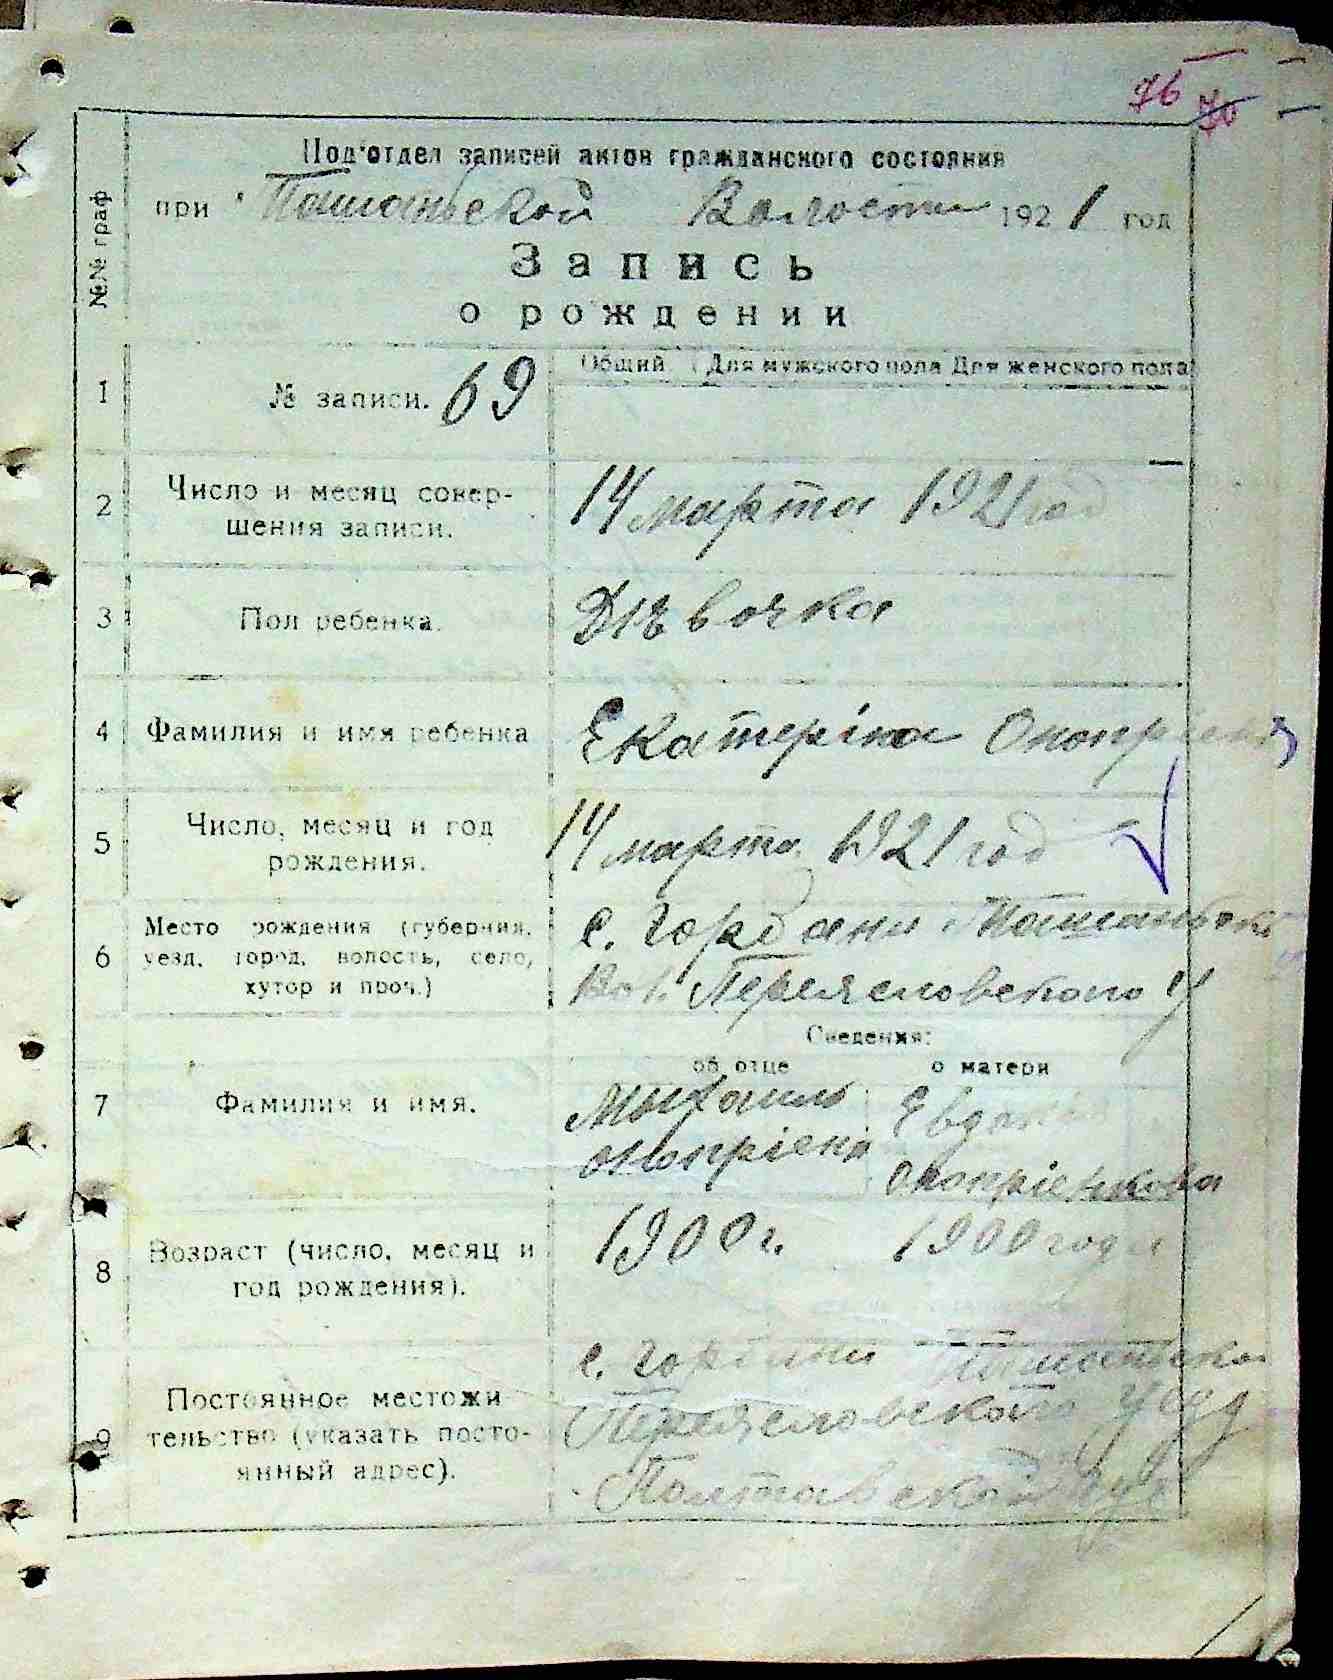 76 70
Под'отдел записей актов гражданского состояния
№№ граф
при Ташаньской Волости 1921 год
Запись
о рождении
1 № записи. 69 Общий Для мужского пола Для женского пола
2 Число и месяц совер-
шения записи.
14 марта 1921 год
3 Пол ребенка.
Дѣвочка
4 Фамилия и имя ребенка
Екатеріна Оноприенк
5 Число, месяц и год
рождения.
14 марта 1921 год
6 Место рождения (губерния,
уезд, город, волость, село,
хутор и проч.)
с. Горбани Ташаньско
Вол. Переяславского У
Сведения:
об отце о матери
7 Фамилия и имя.
Мыхаилъ
Оноприенко
Евдокия
Оноприенкова
8 Возраст (число, месяц и
год рождения).
1900 г. 1900 года
9 Постоянное местожи-
тельство (указать посто-
янный адрес).
с. Горбани Ташаньско
Переяславского Уезд
Полтавской губ